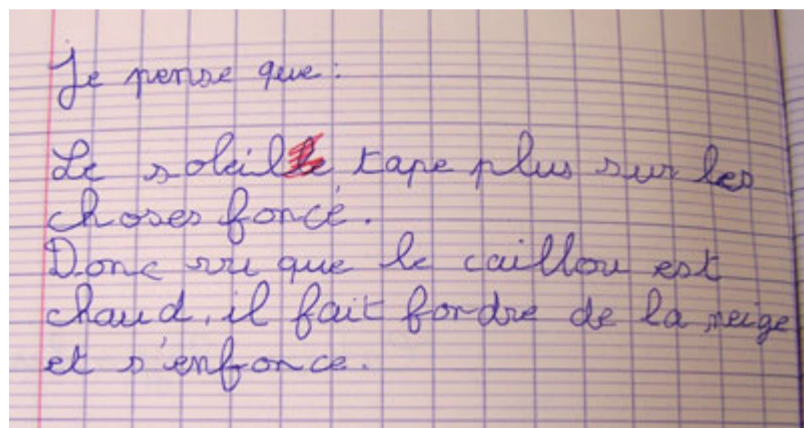 Je pense que :
Le soleil tape plus sur les
choses foncé.
Donc vu que le caillou est
chaud, il fait fondre de la neige
et s'enfonce.